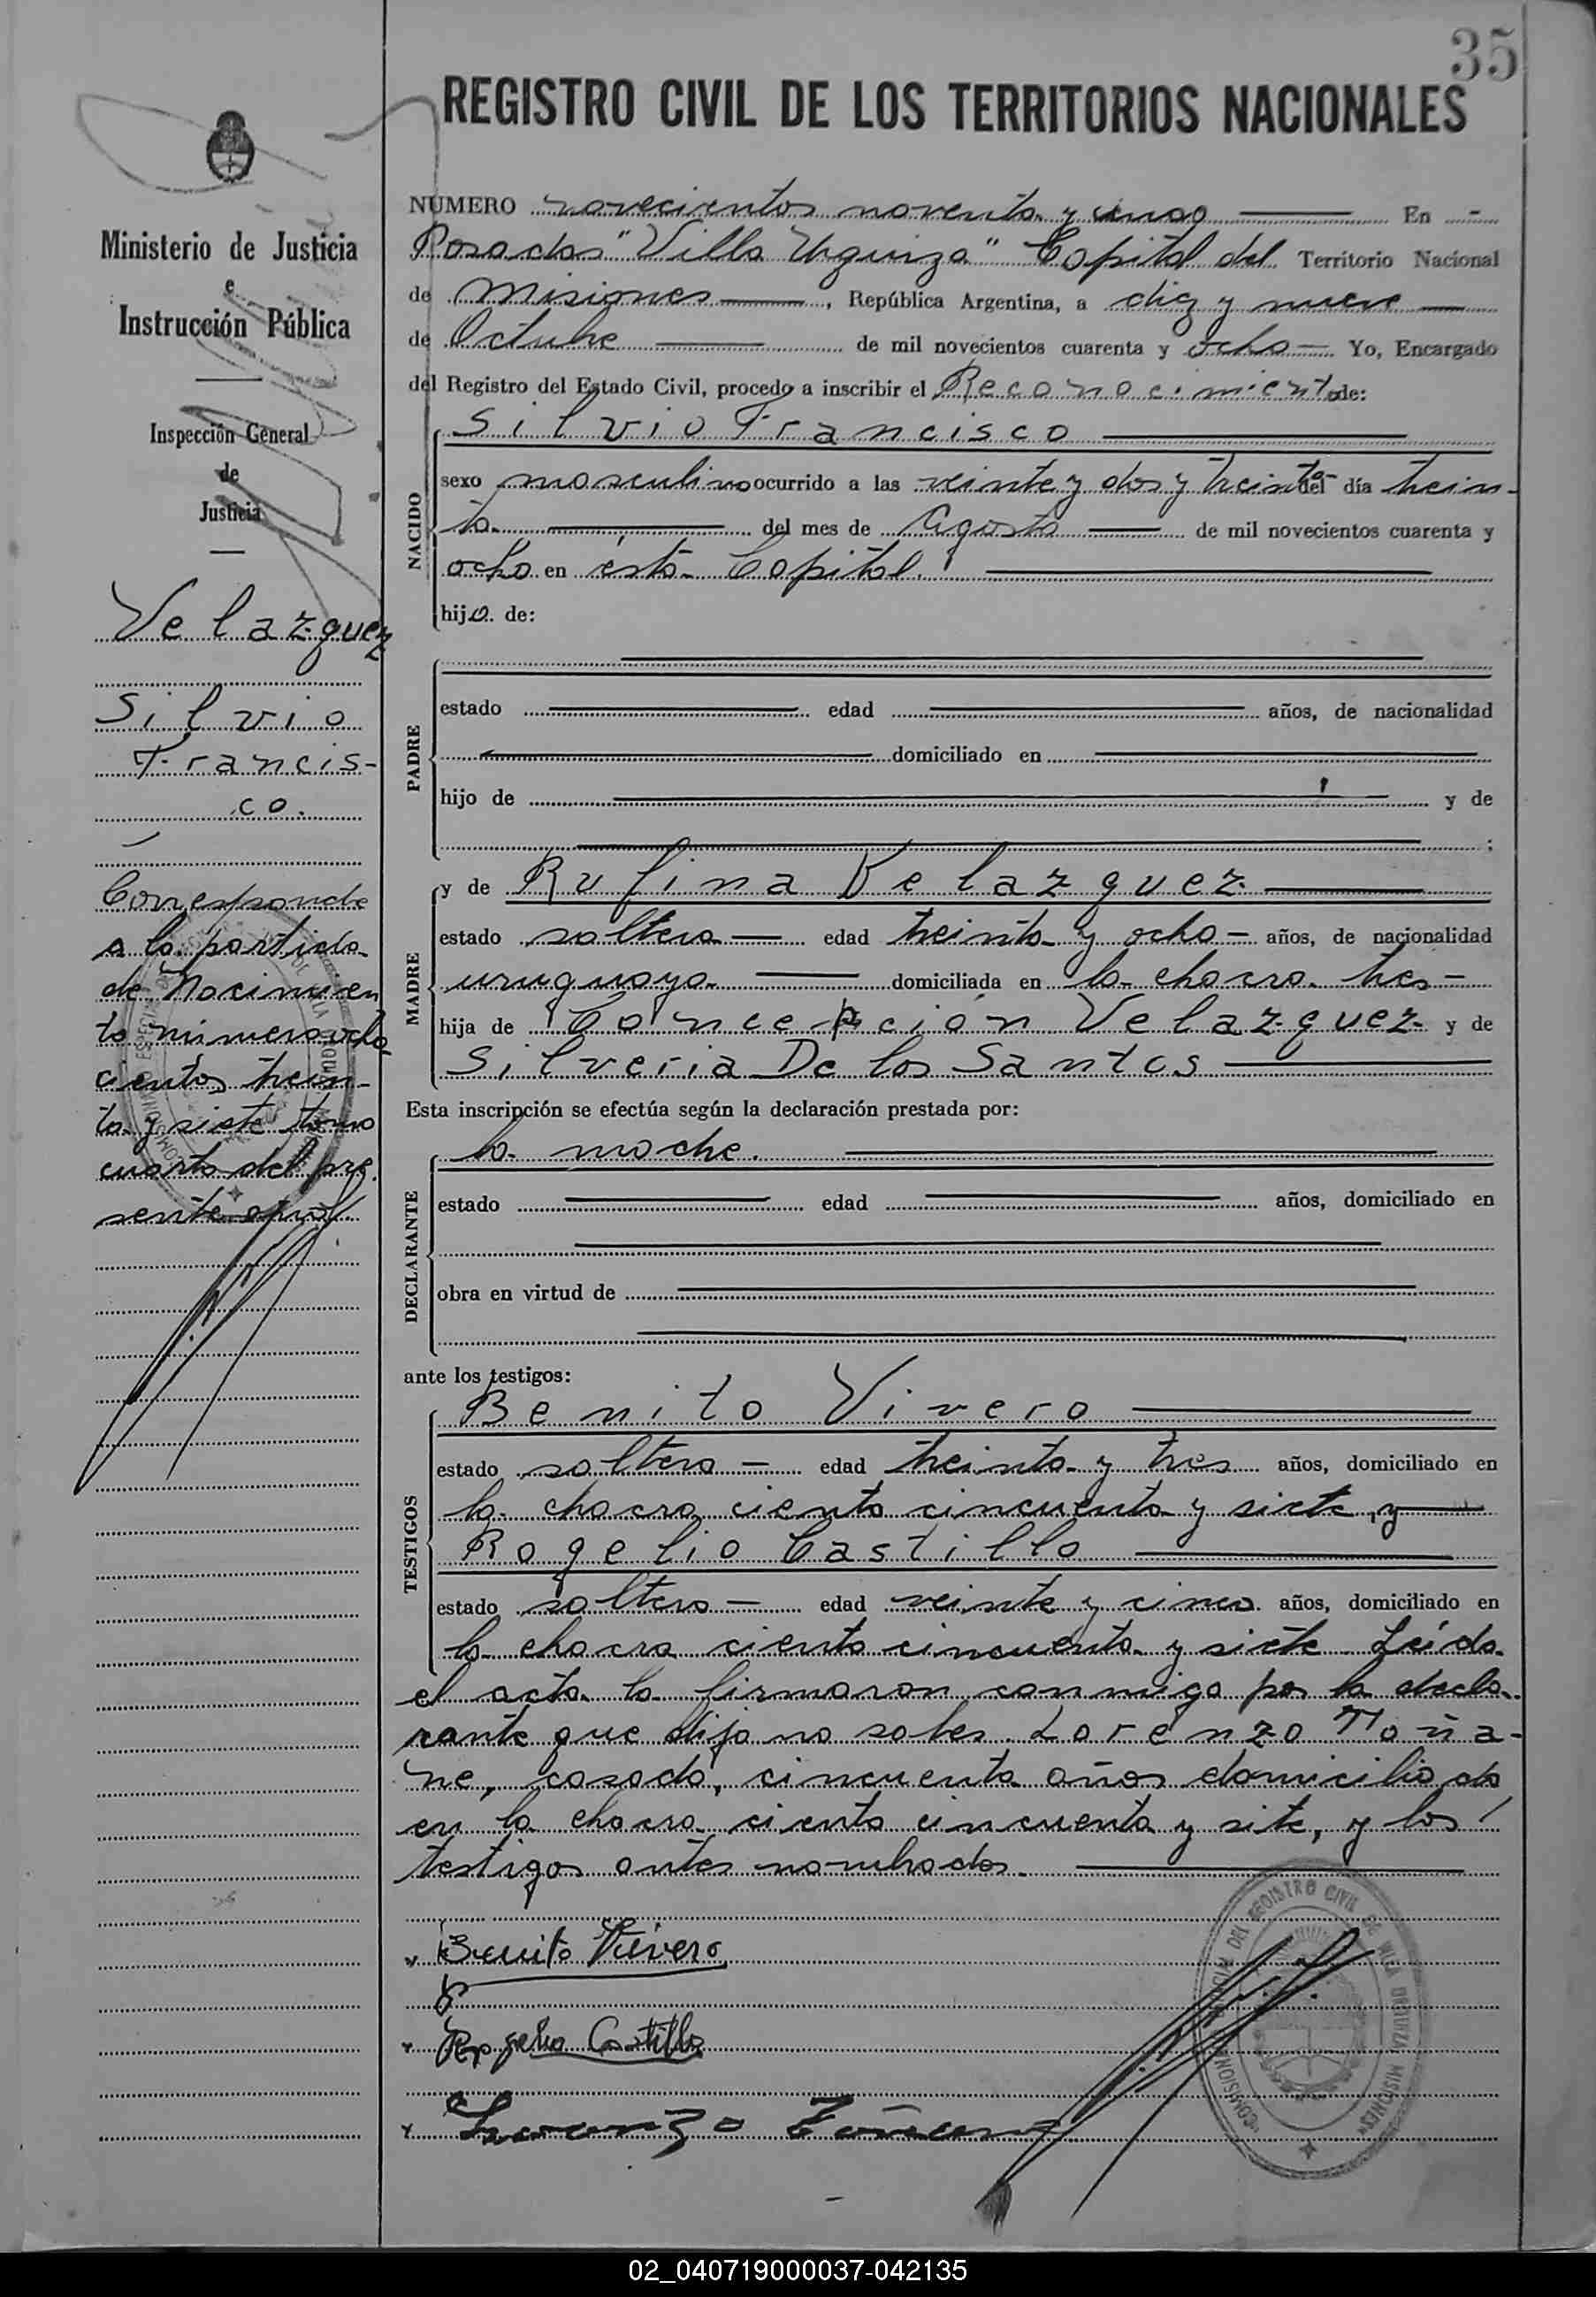 35
REGISTRO CIVIL DE LOS TERRITORIOS NACIONALES
Ministerio de Justicia
e
Instrucción Pública
Inspección General
de
Justicia
Velazquez
Silvio
Francis-
co.
Corresponde
a la partida
de Nacimien
to número ocho
cientos trein-
ta y siete tomo
cuarto del pre
sente año
NÚMERO novecientos noventa y uno En -
Posadas "Villa Urquiza" Capital del Territorio Nacional
de Misiones, República Argentina, a diez y nueve
de Octubre de mil novecientos cuarenta y ocho Yo, Encargado
del Registro del Estado Civil, procedo a inscribir el Reconocimiento de:
NACIDO
Silvio Francisco
sexo masculino ocurrido a las veinte y dos y treinta del día trein-
ta del mes de Agosto de mil novecientos cuarenta y
ocho en ésta Capital.
hijo de:
PADRE
estado edad años, de nacionalidad
domiciliado en
hijo de y de
;
MADRE
y de Rufina Velazquez
estado soltera edad treinta y ocho años, de nacionalidad
uruguaya domiciliada en la chacra tres
hija de Concepción Velazquez y de
Silveria De los Santos
Esta inscripción se efectúa según la declaración prestada por:
DECLARANTE
la madre.
estado edad años, domiciliado en
obra en virtud de
ante los testigos:
TESTIGOS
Benito Vivero
estado soltero edad treinta y tres años, domiciliado en
la chacra ciento cincuenta y siete, y
Rogelio Castillo
estado soltero edad veinte y cinco años, domiciliado en
la chacra ciento cincuenta y siete Leída
el acta la firmaron conmigo por la decla-
rante que dijo no saber Lorenzo Toña-
ne, casado, cincuenta años domiciliado
en la chacra ciento cincuenta y site, y los
testigos antes nombrados.
Benito Vivero
Rogelio Castillo
Lorenzo
REGISTRO CIVIL DE VILLA URQUIZA MISIONES
02_040719000037-042135